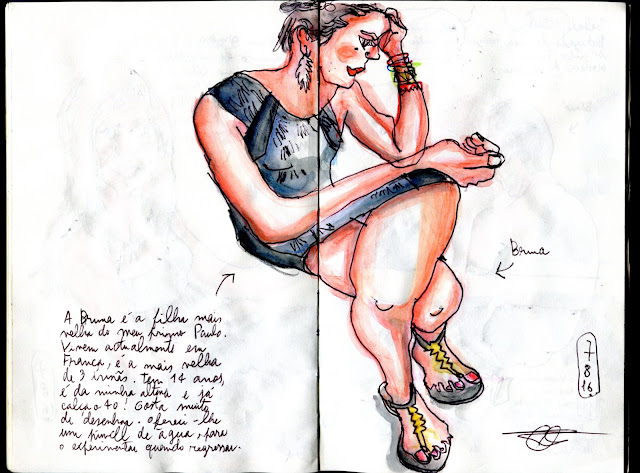 A Bruna é a filha mais
velha do meu primo Paulo.
Vivem actualmente em
França, é a mais velha
de 3 irmãs. Tem 14 anos,
é da minha altura e já
calça o 40! Gosta muito
de desenhar. Ofereci-lhe
um pincel de água, para
o experimentar quando regressar.
Bruna
7
8
16